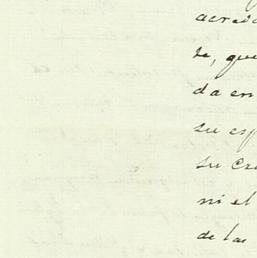 acred
te, que
da en
su esp
su Cre
ni el
de las